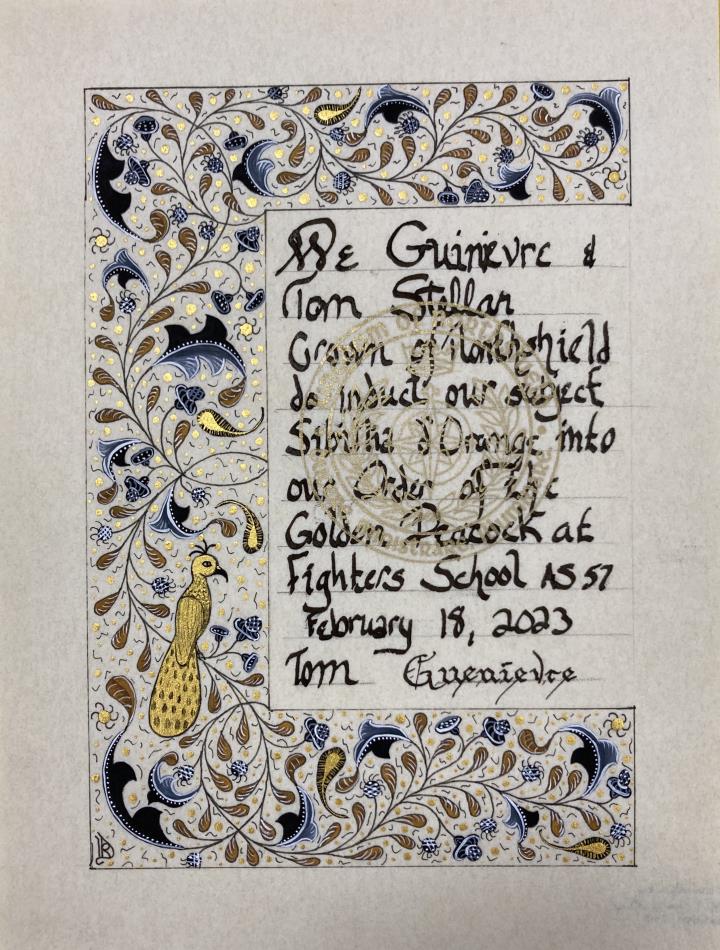 We Guinievre &
Tom Stellar
Crown of Northshield
do induct our subject
Sibilla d'Orange into
our Order of the
Golden Peacock at
Fighters School AS 57
February 18, 2023
Tom Guenievre